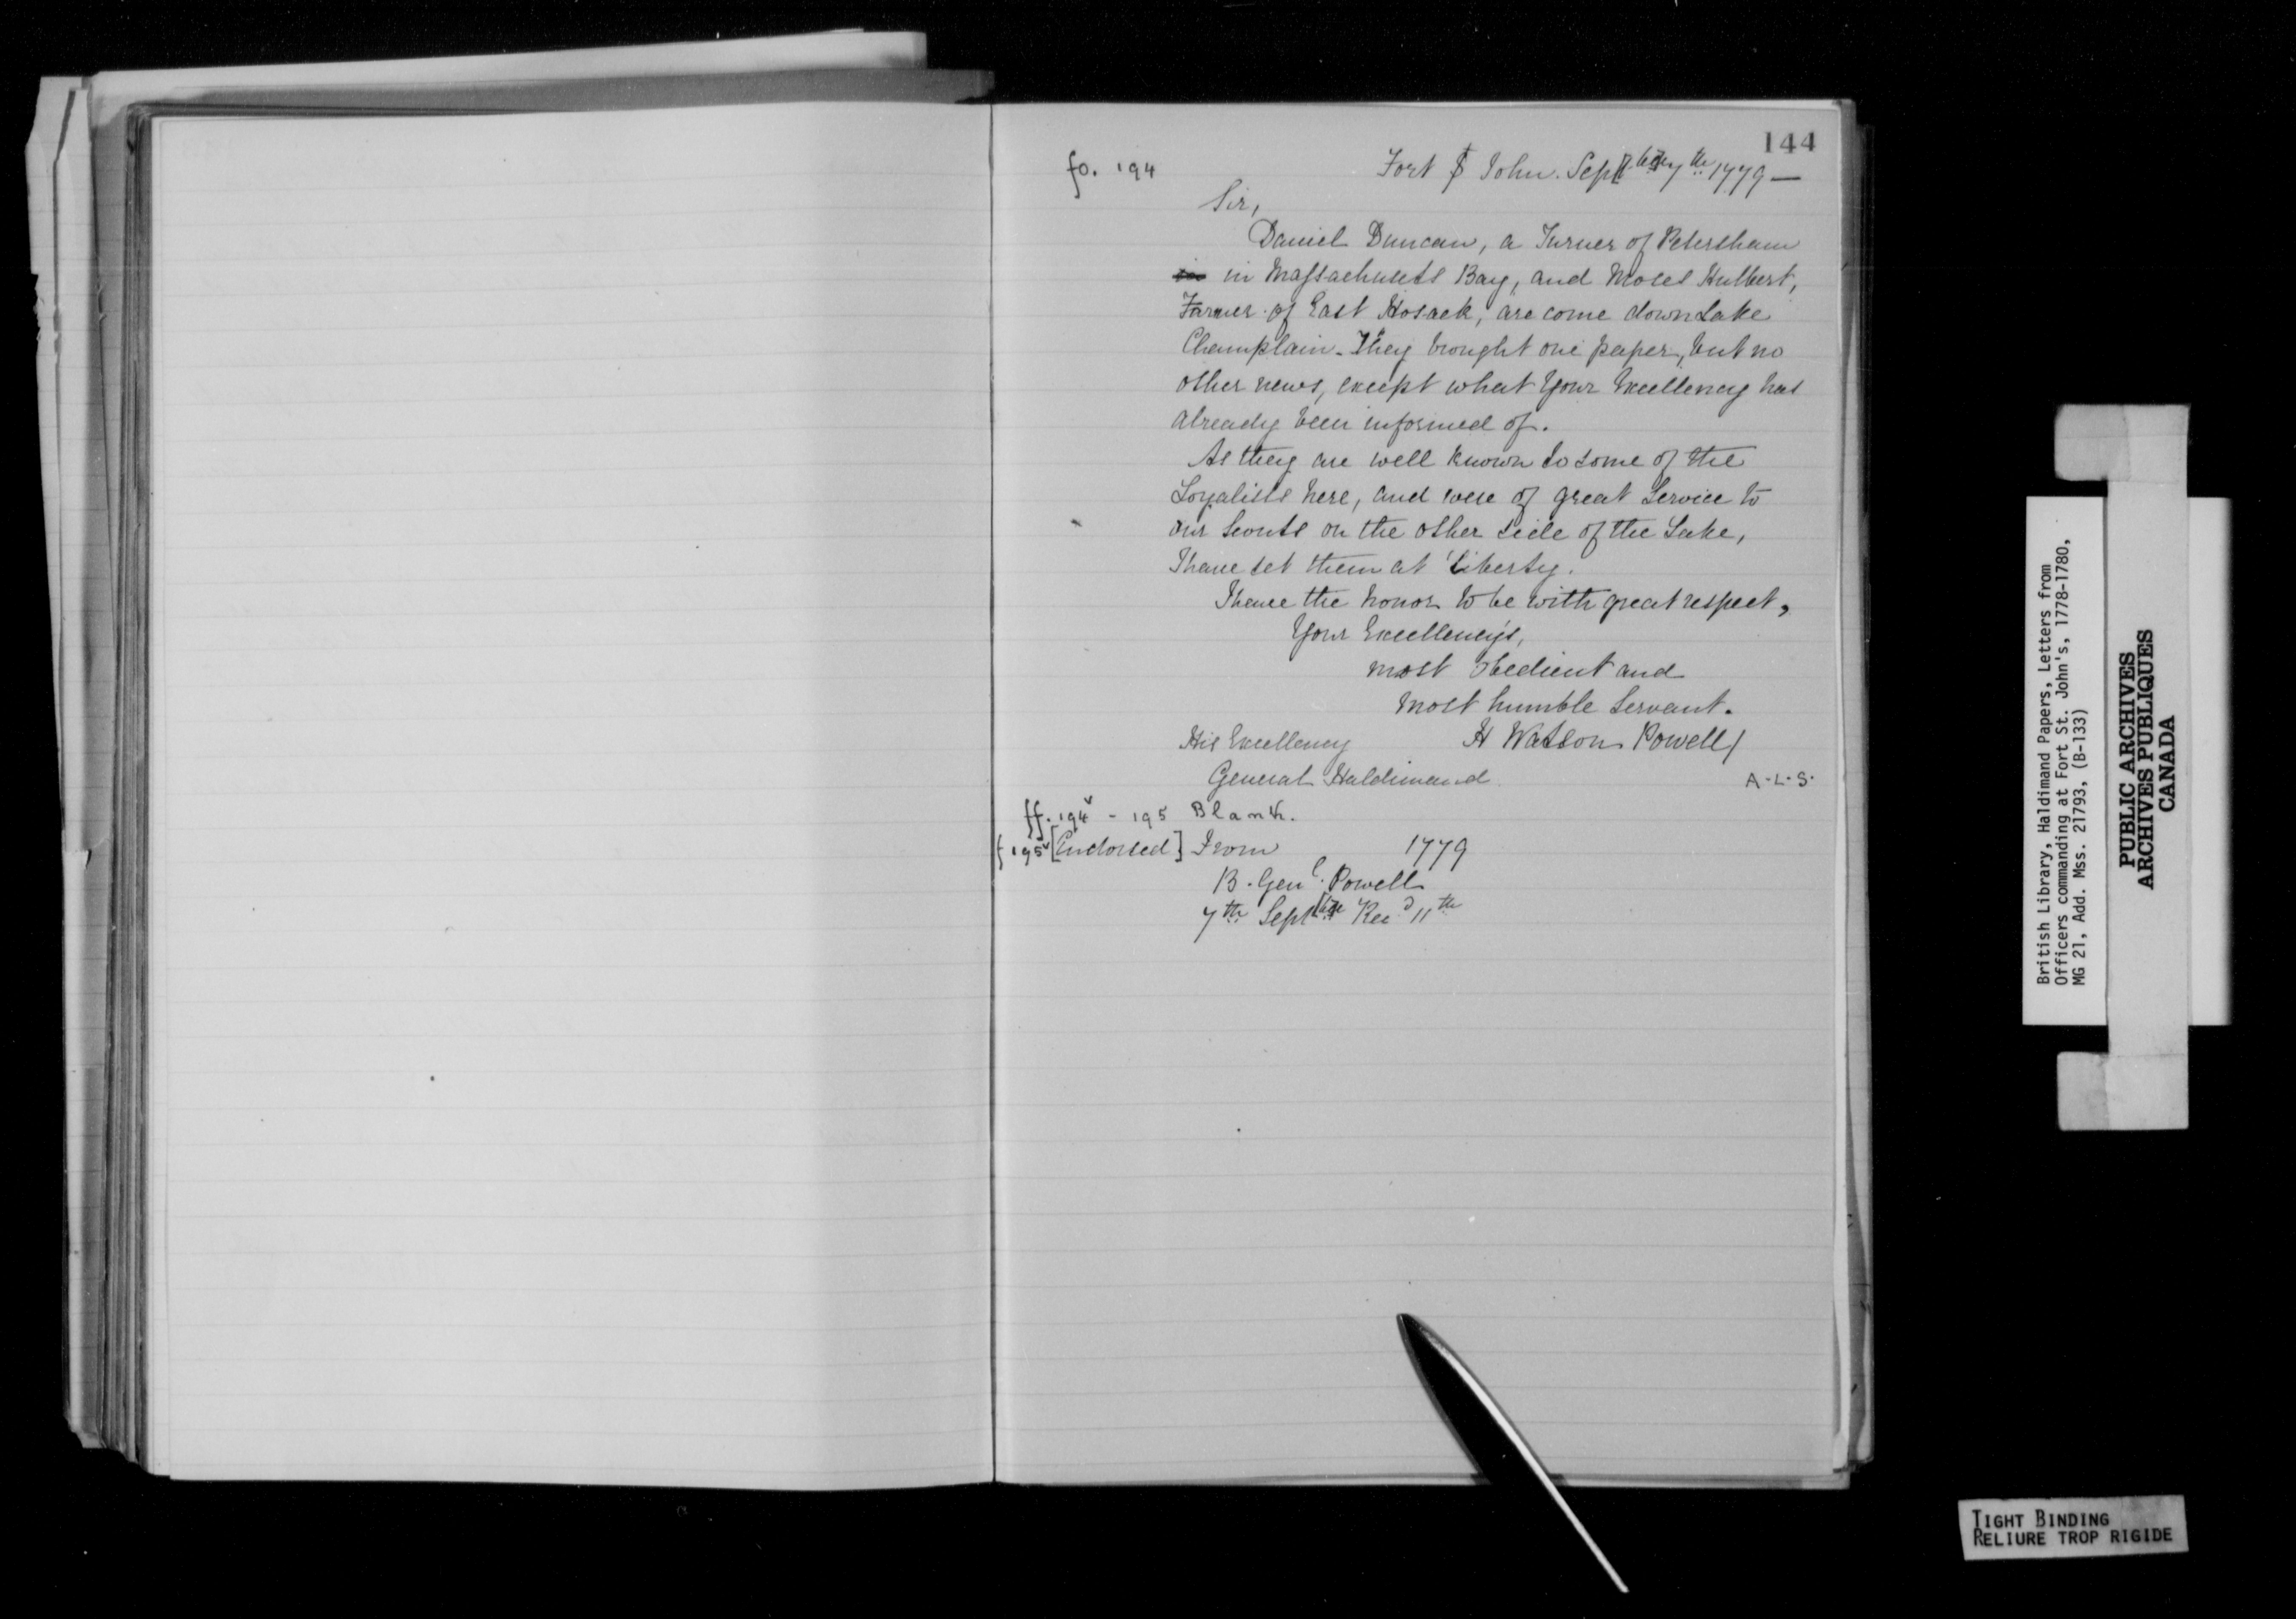 144
fo. 194
Fort St John. Septber 7th 1779 —
Sir,
Daniel Duncan, a Turner of Petersham
in Massachusets Bay, and Moses Hulbert,
Farmer of East Hosack, are come down Lake
Champlain. They brought one paper, but no
other news, except what Your Excellency has
already been informed of.
As they are well known to some of the
Loyalists here, and were of great Service to
our Scouts on the other side of the Lake,
I have set them at Liberty.
I have the honor to be with great respect,
Your Excellency's,
most obedient and
most humble Servant.
His Excellency H Watson Powell
General Haldimand A.L.S.
ff. 194v - 195 Blank.
f 195v [Endorsed] From 1779
B. Genl. Powell
7th Septber Recd 11th
British Library, Haldimand Papers, Letters from
Officers commanding at Fort St. John's, 1778-1780,
MG 21, Add. Mss. 21793, (B-133)
PUBLIC ARCHIVES
ARCHIVES PUBLIQUES
CANADA
TIGHT BINDING
RELIURE TROP RIGIDE